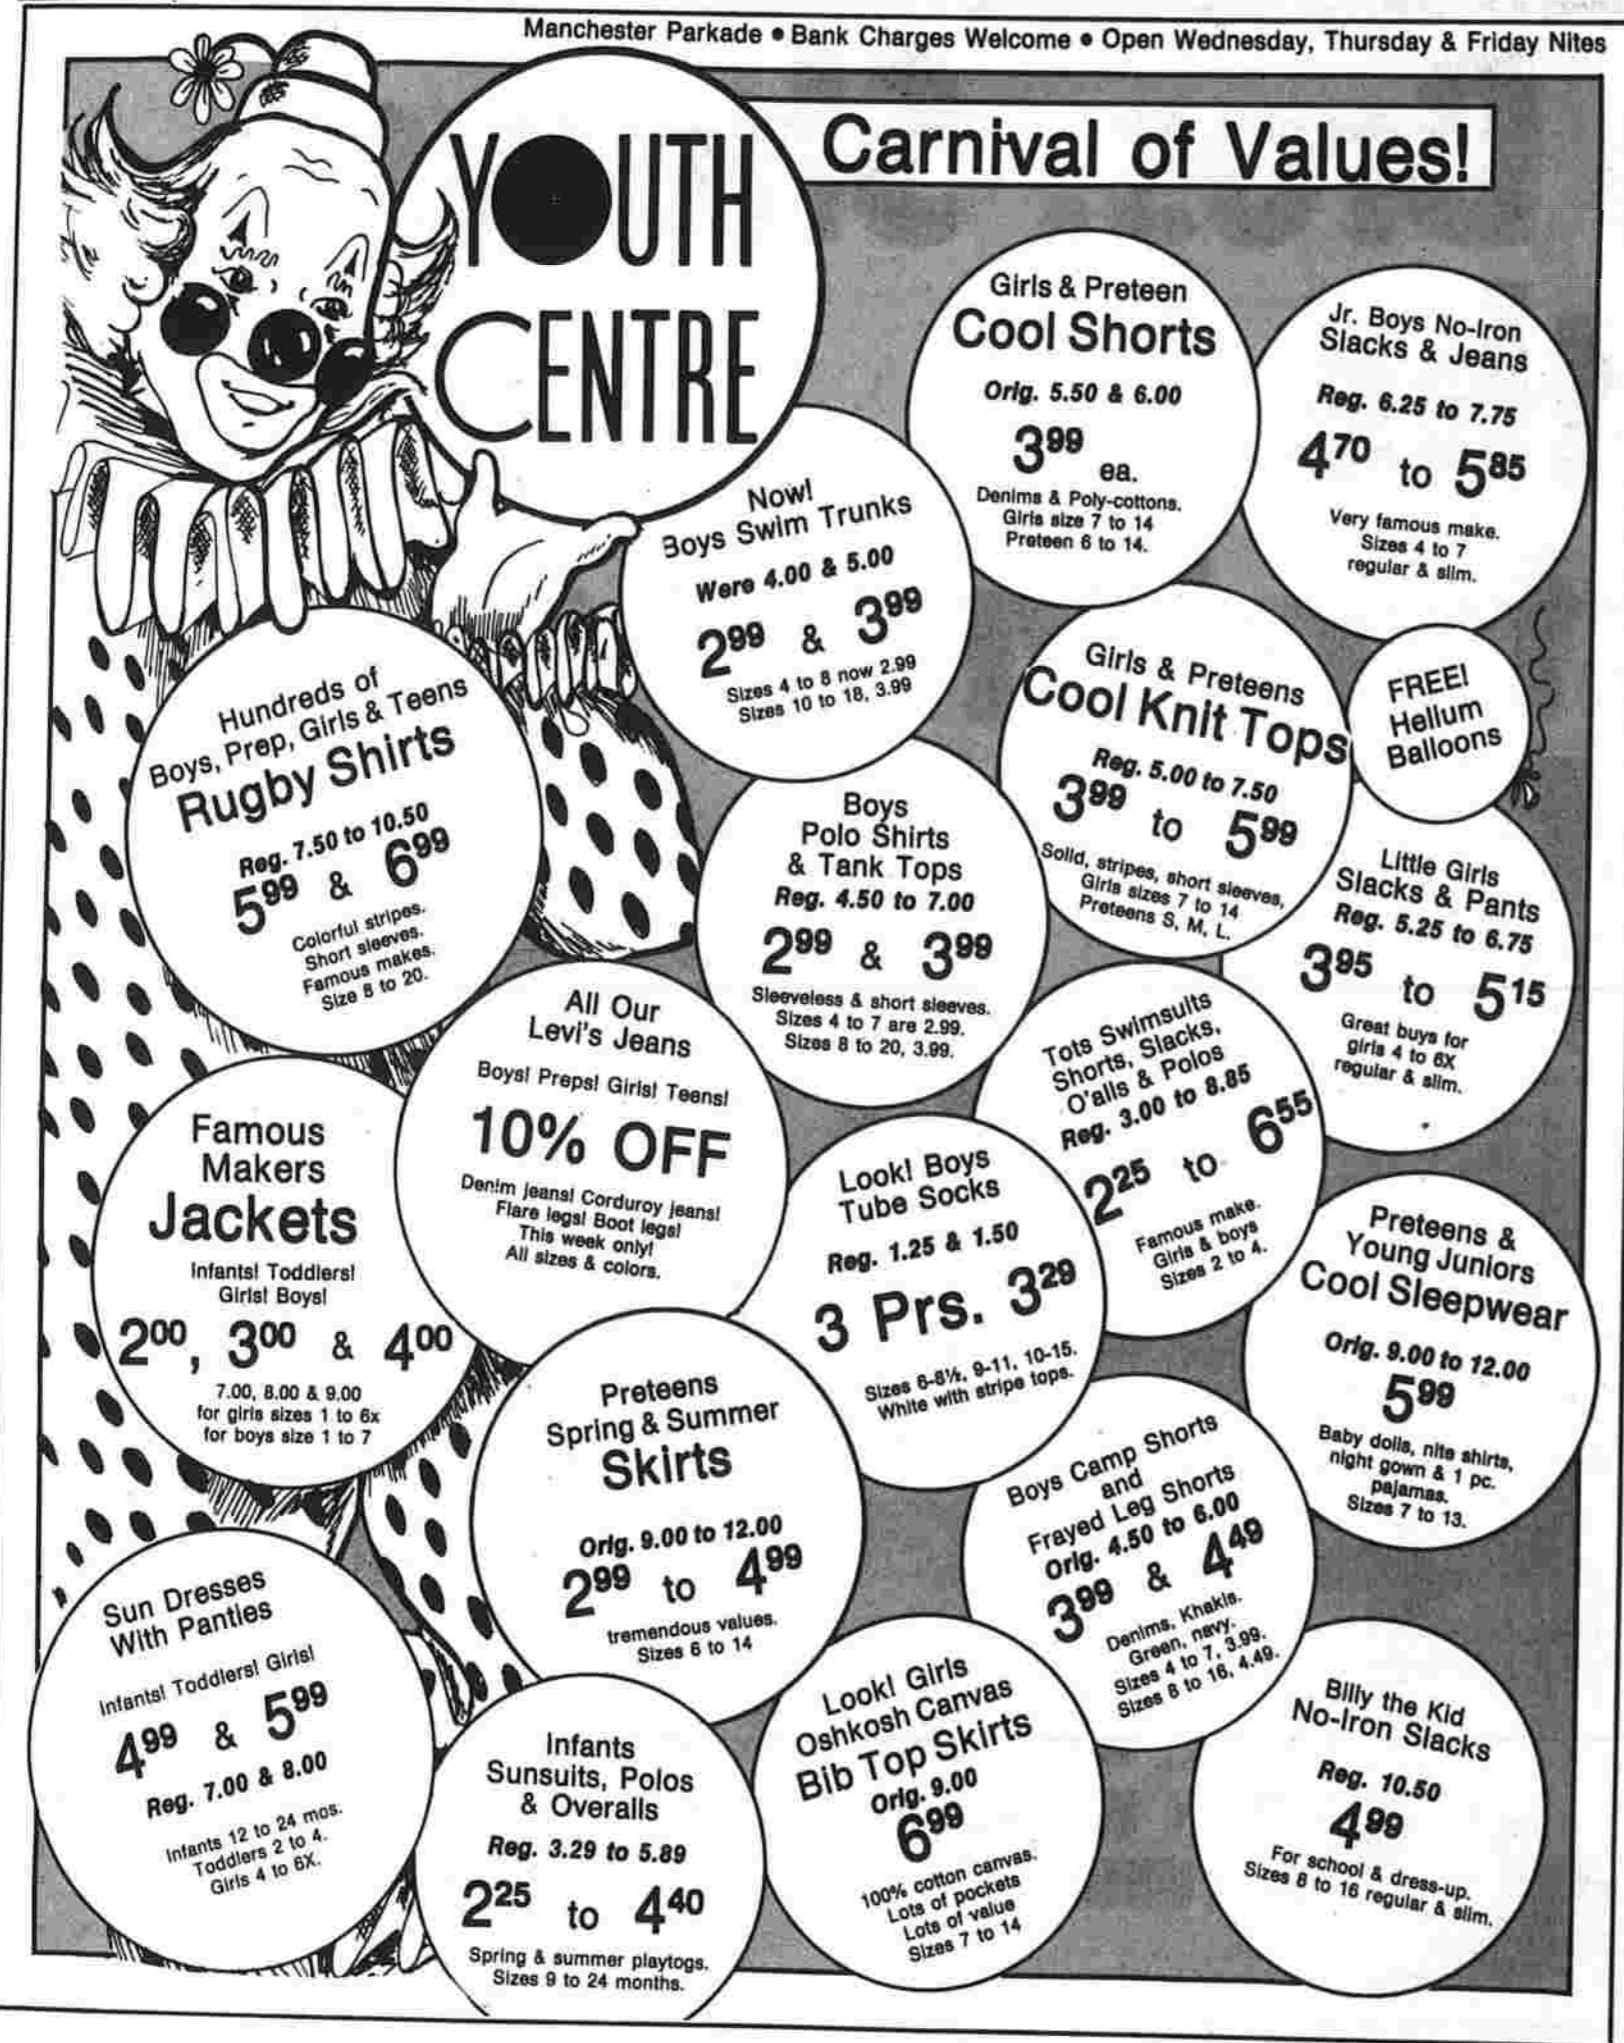 Manchester Parkade • Bank Charges Welcome • Open Wednesday, Thursday & Friday Nites
YOUTH
CENTRE
Carnival of Values!
Girls & Preteen
Cool Shorts
Orig. 5.50 & 6.00
3.99 ea.
Denims & Poly-cottons.
Girls size 7 to 14
Preteen 6 to 14.
Jr. Boys No-Iron
Slacks & Jeans
Reg. 6.25 to 7.75
4.70 to 5.85
Very famous make.
Sizes 4 to 7
regular & slim.
Now!
Boys Swim Trunks
Were 4.00 & 5.00
2.99 & 3.99
Sizes 4 to 8 now 2.99
Sizes 10 to 18, 3.99
Hundreds of
Boys, Prep, Girls & Teens
Rugby Shirts
Reg. 7.50 to 10.50
5.99 & 6.99
Colorful stripes.
Short sleeves.
Famous makes.
Size 8 to 20.
Girls & Preteens
Cool Knit Tops
Reg. 5.00 to 7.50
3.99 to 5.99
Solid, stripes, short sleeves,
Girls sizes 7 to 14
Preteens S, M, L.
FREE!
Helium
Balloons
Boys
Polo Shirts
& Tank Tops
Reg. 4.50 to 7.00
2.99 & 3.99
Sleeveless & short sleeves.
Sizes 4 to 7 are 2.99.
Sizes 8 to 20, 3.99.
Little Girls
Slacks & Pants
Reg. 5.25 to 6.75
3.95 to 5.15
Great buys for
girls 4 to 6X
regular & slim.
All Our
Levi's Jeans
Boys! Preps! Girls! Teens!
10% OFF
Denim jeans! Corduroy jeans!
Flare legs! Boot legs!
This week only!
All sizes & colors.
Tots Swimsuits
Shorts, Slacks,
O'alls & Polos
Reg. 3.00 to 8.85
2.25 to 6.55
Famous make.
Girls & boys
Sizes 2 to 4.
Famous
Makers
Jackets
Infants! Toddlers!
Girls! Boys!
2.00, 3.00 & 4.00
7.00, 8.00 & 9.00
for girls sizes 1 to 6x
for boys size 1 to 7
Look! Boys
Tube Socks
Reg. 1.25 & 1.50
3 Prs. 3.29
Sizes 6-8½, 9-11, 10-15.
White with stripe tops.
Preteens &
Young Juniors
Cool Sleepwear
Orig. 9.00 to 12.00
5.99
Baby dolls, nite shirts,
night gown & 1 pc.
pajamas.
Sizes 7 to 13.
Preteens
Spring & Summer
Skirts
Orig. 9.00 to 12.00
2.99 to 4.99
tremendous values.
Sizes 6 to 14
Boys Camp Shorts
and
Frayed Leg Shorts
Orig. 4.50 to 6.00
3.99 & 4.49
Denims, Khakis.
Green, navy.
Sizes 4 to 7, 3.99.
Sizes 8 to 16, 4.49.
Sun Dresses
With Panties
Infants! Toddlers! Girls!
4.99 & 5.99
Reg. 7.00 & 8.00
Infants 12 to 24 mos.
Toddlers 2 to 4.
Girls 4 to 6X.
Infants
Sunsuits, Polos
& Overalls
Reg. 3.29 to 5.89
2.25 to 4.40
Spring & summer playtogs.
Sizes 9 to 24 months.
Look! Girls
Oshkosh Canvas
Bib Top Skirts
Orig. 9.00
6.99
100% cotton canvas.
Lots of pockets
Lots of value
Sizes 7 to 14
Billy the Kid
No-Iron Slacks
Reg. 10.50
4.99
For school & dress-up.
Sizes 8 to 16 regular & slim.